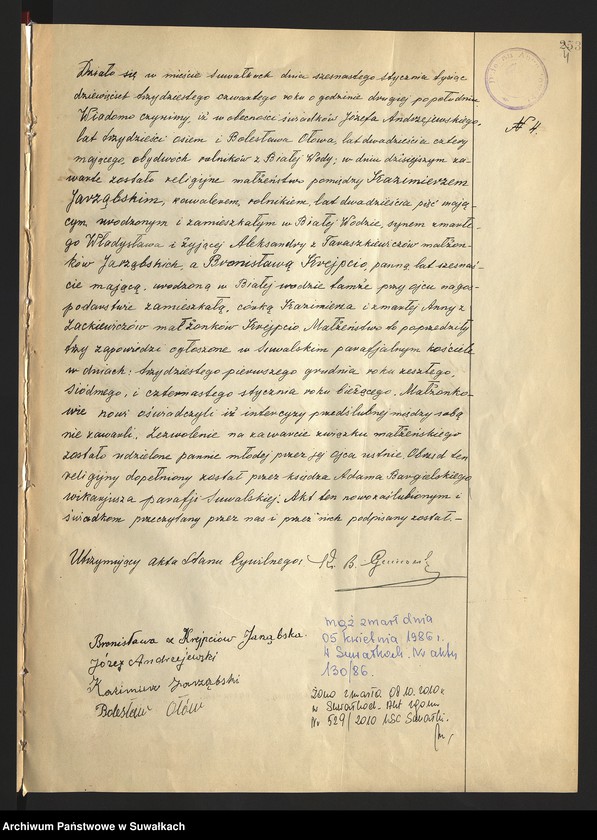 253
4
№ 4.
Działo się w mieście Suwałkach dnia szesnastego stycznia tysiąc
dziewięćset trzydziestego czwartego roku o godzinie drugiej popołudniu
Wiadomo czynimy, iż w obecności świadków Józefa Andrzejewskiego,
lat trzydzieści osiem i Bolesława Ołowa, lat dwadzieścia cztery
mającego, obydwóch rolników z Białej Wody; w dniu dzisiejszym za-
warte zostało religijne małżeństwo pomiędzy Kazimierzem
Jarząbskim, kawalerem, rolnikiem, lat dwadzieścia pięć mają-
cym, urodzonym i zamieszkałym w Białej Wodzie, synem zmarłe-
go Władysława i żyjącej Aleksandry z Taraszkiewiczów małżon-
ków Jarząbskich, a Bronisławą Krejpcio, panną, lat szesnaś-
cie mającą, urodzoną w Białej wodzie tamże przy ojcu na gos-
podarstwie zamieszkałą, córką Kazimierza i zmarłej Anny z
Zackiewiczów małżonków Krejpcio. Małżeństwo to poprzedziły
trzy zapowiedzi ogłoszone w Suwalskim parafjalnym kościele
w dniach: trzydziestego pierwszego grudnia roku zeszłego,
siódmego, i czternastego stycznia roku bieżącego. Małżonko-
wie nowi oświadczyli iż intercyzy przedślubnej między sobą
nie zawarli. Zezwolenie na zawarcie związku małżeńskiego
zostało udzielone pannie młodej przez jej ojca ustnie. Obrzęd ten
religijny dopełniony został przez księdza Adama Bargielskiego
wikarjusza parafji Suwalskiej. Akt ten nowozaślubionym i
świadkom przeczytany przez nas i przez nich podpisany został.—
Utrzymujący akta Stanu Cywilnego: Ks. B.
Bronisława z Krejpciów Jarząbska.
Józef Andrzejewski
Kazimierz Jarząbski
Bolesław Ołów
mąż zmarł dnia
05 kwietnia 1986 r.
w Suwałkach. Nr aktu
130/86.
Żona zmarła 08.10.2010 r
w Suwałkach. Akt zgonu
Nr 529/2010 USC Suwałki.
Archiwum Państwowe w Suwałkach